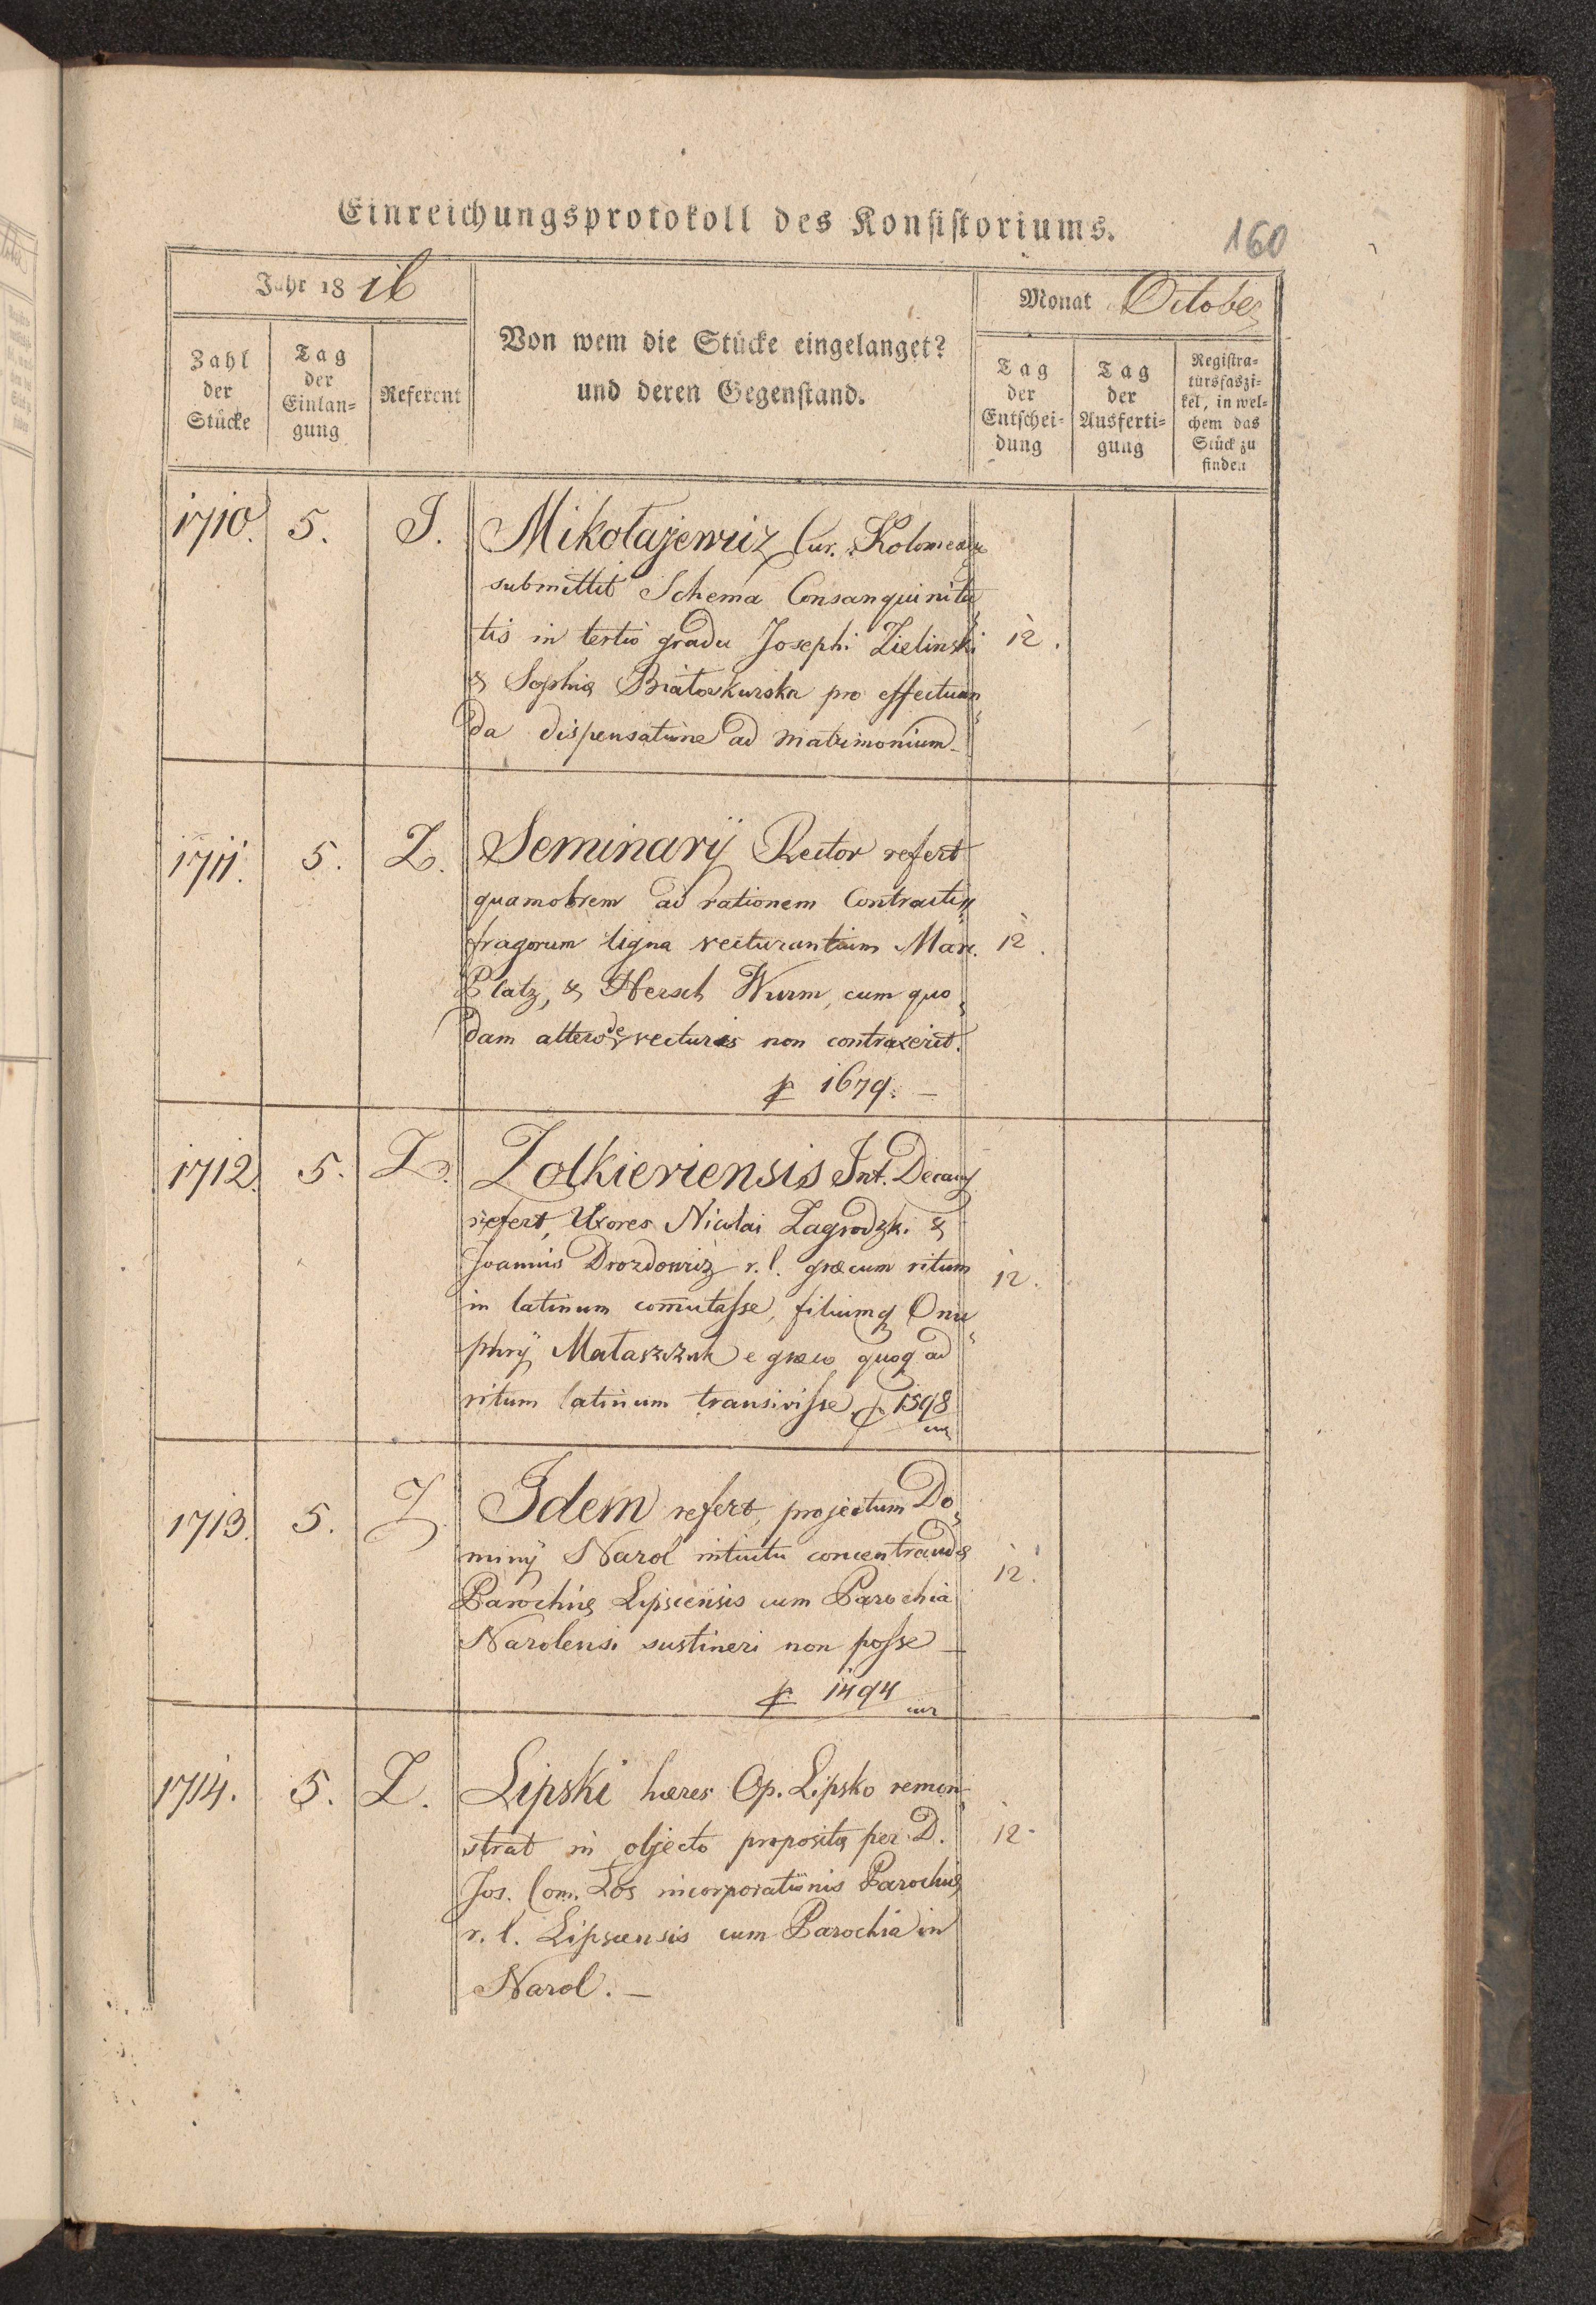 Einreichungsprotokoll des Konsistoriums.
160
Jahr 1816
Monat October
Zahl der Stücke
Tag der Einlangung
Referent
Von wem die Stücke eingelanget?
und deren Gegenstand.
Tag der Entscheidung
Tag der Ausfertigung
Registratursfaszikel, in welchem das Stück zu finden
1710. 5. J. Mikołajewicz Cur.
submittit Schema Consanguinita„
tis in tertio gradu Josephi Zielinski 12.
& Sophię Białoskurska pro effectuan„
da dispensatione ad matrimonium_
1711. 5. Z. Seminarij Rector refert
quamobrem ad rationem Contracti„
fragorum ligna vecturantium Marc. 12.
Platz, & Hersch Wurm, cum quo„
dam altero de vecturis non contraxerit.
p 1679. _
1712. 5. Z. Zolkieviensis Int. Decan9
refert, Uxores Nicolai Zagrodzki &
Joannis Drozdowicz r. l. græcum ritum 12.
in latinum com̄utasse, filiumq Onu„
phrij Mataszczuk e græco quoq ad
ritum latinum transivisse. p 1598
1713. 5. Z. Idem refert, projectum Do„
minij Narol intuitu concentrandę 12.
Parochię Lipsciensis cum Parochia
Narolensi sustineri non posse _
p 1494
1714. 5. Z. Lipski hæres Op. Lipsko remon„
strat in objecto propositę per D. 12.
Jos. Com. Łos incorporationis Parochię
r. l. Lipscensis cum Parochia in
Narol. _